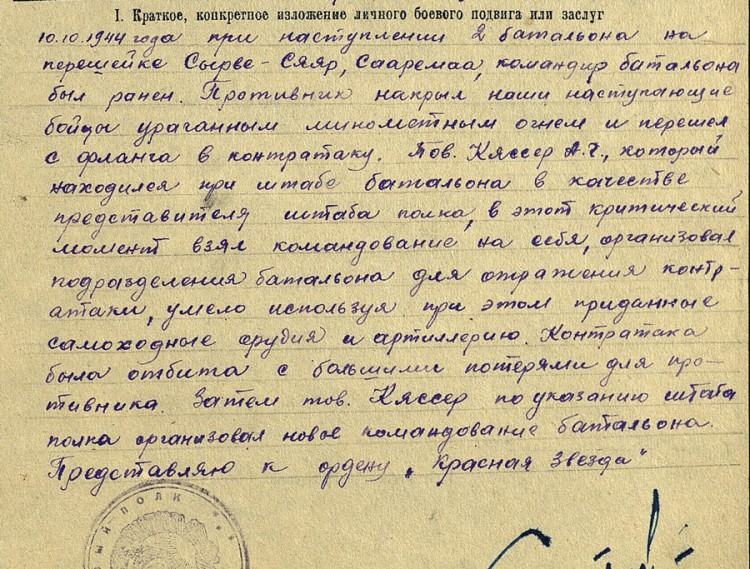 I. Краткое, конкретное изложение личного боевого подвига или заслуг
10.10.1944 года при наступлении 2 батальона на
перешейке Сырве-Сяяр, Сааремаа, командир батальона
был ранен. Противник накрыл наши наступающие
бойцы ураганным минометным огнем и перешел
с фланга в контратаку. Тов. Кяссер А.Г., который
находился при штабе батальона в качестве
представителя штаба полка, в этот критический
момент взял командование на себя, организовал
подразделения батальона для отражения контр-
атаки, умело используя при этом приданные
самоходные орудия и артиллерию. Контратака
была отбита с большими потерями для про-
тивника. Затем тов. Кяссер по указанию штаба
полка организовал новое командование батальона.
Представляю к ордену „Красная Звезда"
ПОЛК